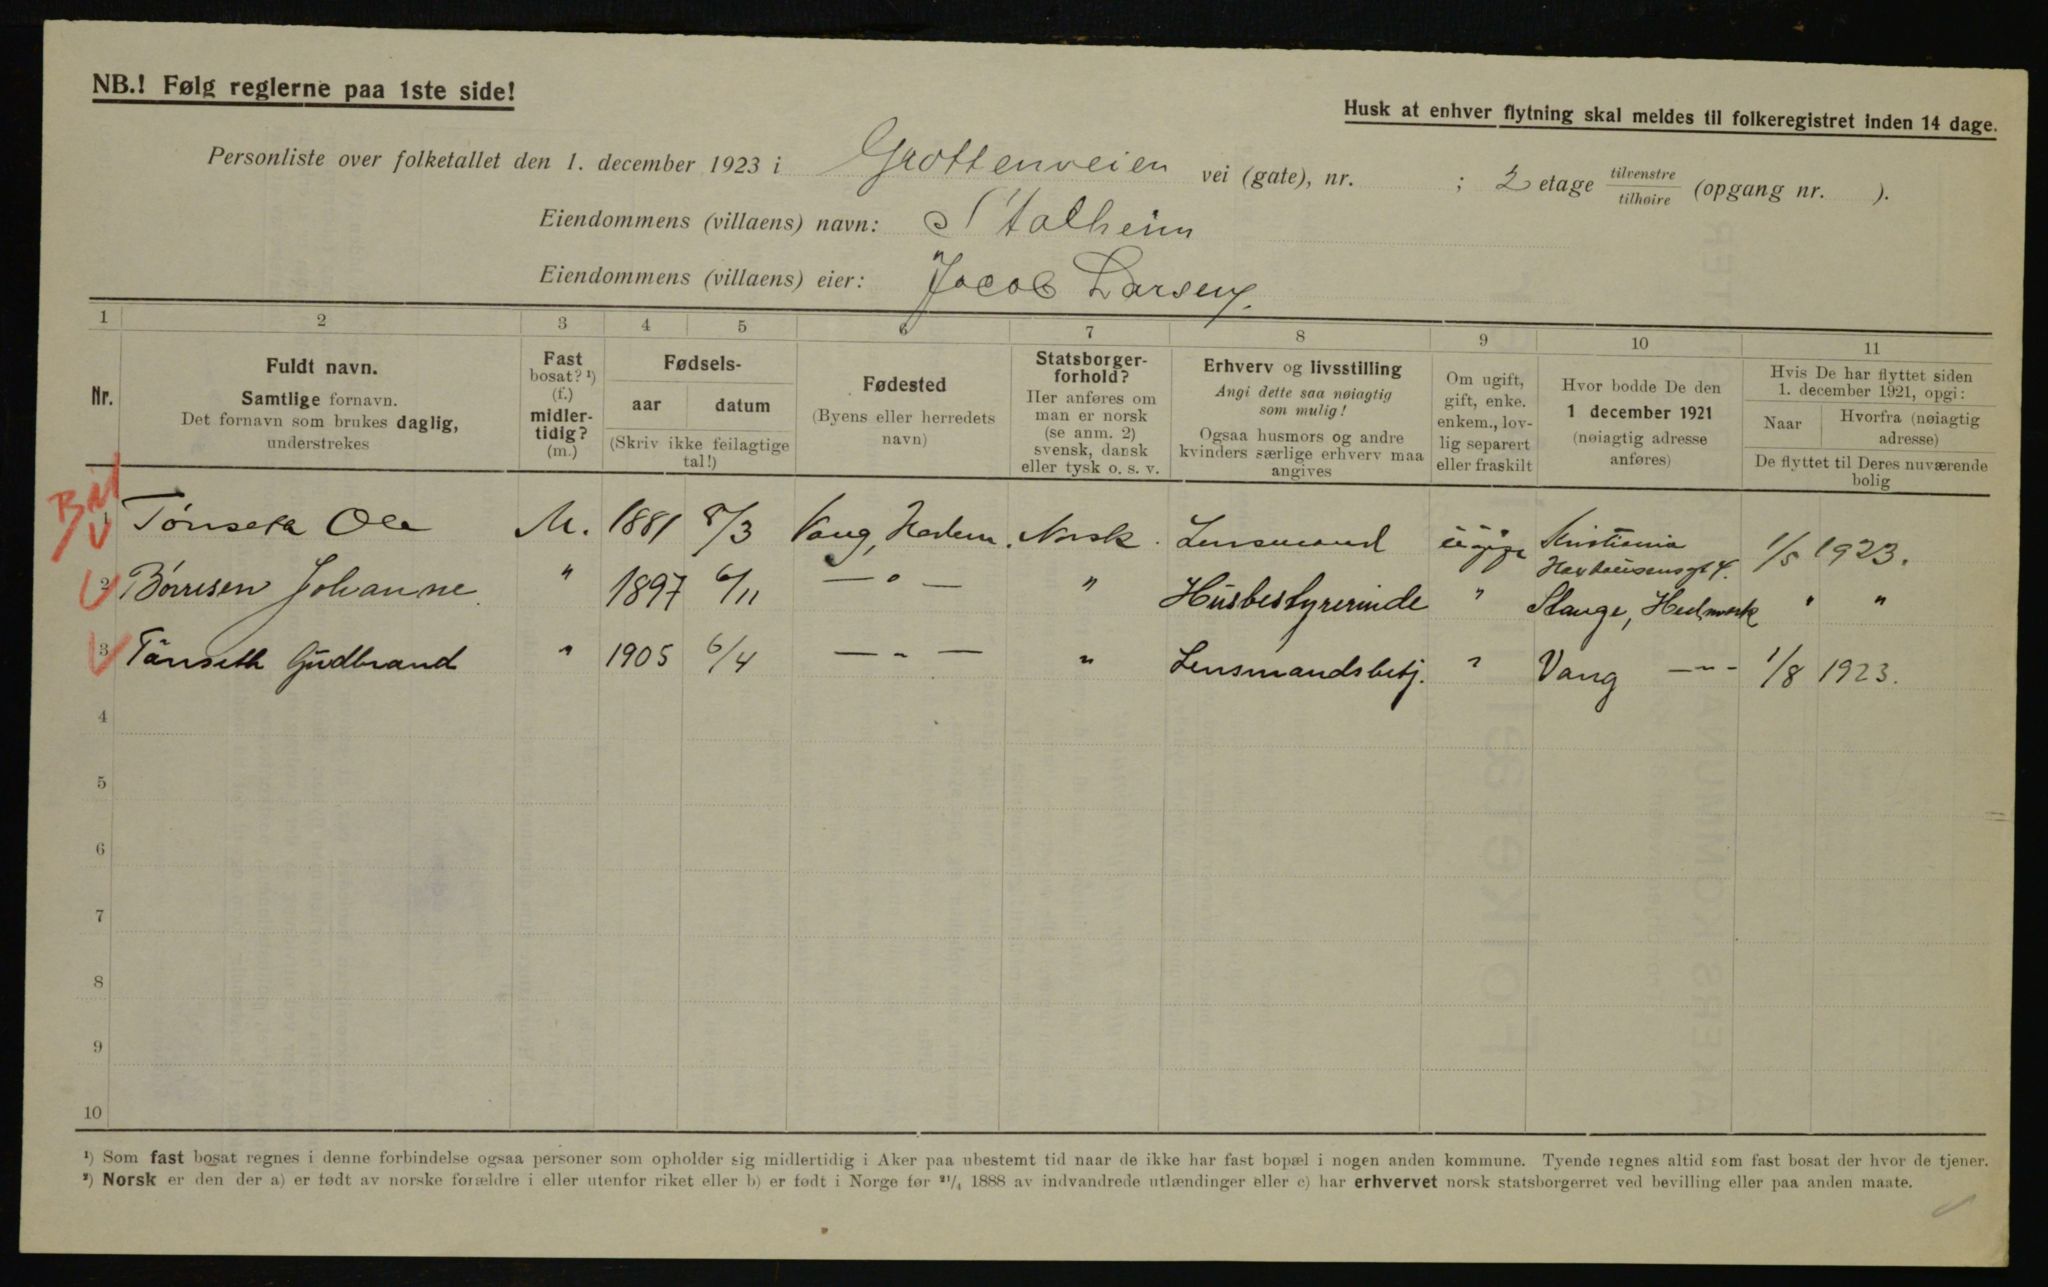 NB.! Følg reglerne paa 1ste side!
Husk at enhver flytning skal meldes til folkeregistret inden 14 dage.
Personliste over folketallet den 1. december 1923 i Grottenveien vei (gate), nr. ; 2 etage tilvenstre tilhøire (opgang nr. ).
Eiendommens (villaens) navn: Stalheim
Eiendommens (villaens) eier: Jacob Larsen.
1 2 3 4 5 6 7 8 9 10 11
Nr.
Fuldt navn.
Samtlige fornavn.
Det fornavn som brukes daglig,
understrekes
Fast
bosat? ¹)
(f.)
midler-
tidig?
(m.)
Fødsels-
aar datum
(Skriv ikke feilagtige
tal!)
Fødested
(Byens eller herredets
navn)
Statsborger-
forhold?
Her anføres om
man er norsk
(se anm. 2)
svensk, dansk
eller tysk o. s. v.
Erhverv og livsstilling
Angi dette saa nøiagtig
som mulig!
Ogsaa husmors og andre
kvinders særlige erhverv maa
angives
Om ugift,
gift, enke.
enkem., lov-
lig separert
eller fraskilt
Hvor bodde De den
1 december 1921
(nøiagtig adresse
anføres)
Hvis De har flyttet siden
1. december 1921, opgi:
Naar
Hvorfra (nøiagtig
adresse)
De flyttet til Deres nuværende
bolig
1 Tønseth Ole M. 1881 8/3 Vang, Hedem. Norsk. Lensmand ugift Kristiania 1/5 1923.
2 Børresen Johanne. " 1897 6/11 — " — " Husbestyrerinde " Stange, Hedmark " "
3 Tönseth Gudbrand " 1905 6/4 — " — " Lensmandsbetj. " Vang — " — 1/8 1923.
4
5
6
7
8
9
10
¹) Som fast bosat regnes i denne forbindelse ogsaa personer som opholder sig midlertidig i Aker paa ubestemt tid naar de ikke har fast bopæl i nogen anden kommune. Tyende regnes altid som fast bosat der hvor de tjener.
²) Norsk er den der a) er født av norske forældre i eller utenfor riket eller b) er født i Norge før ²¹/₄ 1888 av indvandrede utlændinger eller c) har erhvervet norsk statsborgerret ved bevilling eller paa anden maate.